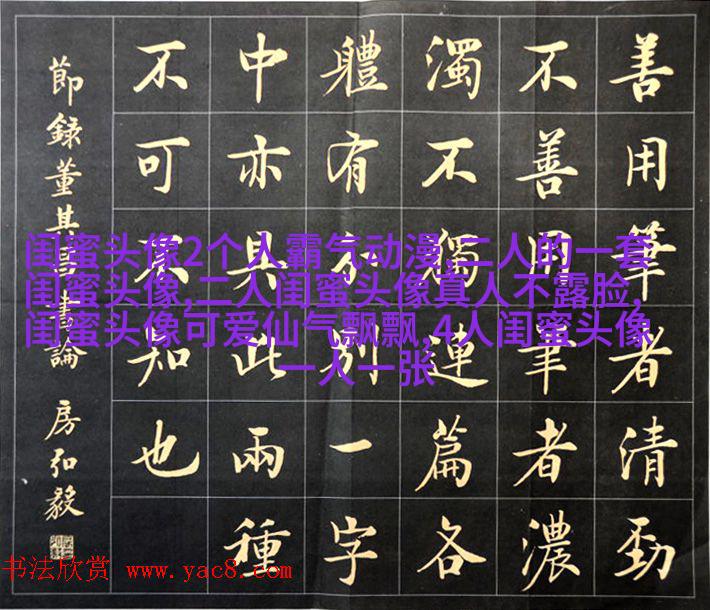 善用筆者清勁
不善用筆者濃
濁不獨連篇各
體有分別一字
中亦具此兩種
不可不知也
節錄董其昌書論 房弘毅
闺蜜头像2个人霸气动漫,二人的一套
闺蜜头像,二人闺蜜头像真人不露脸,
闺蜜头像可爱仙气飘飘,4人闺蜜头像
一人一张
书法欣赏 www.yac8.com